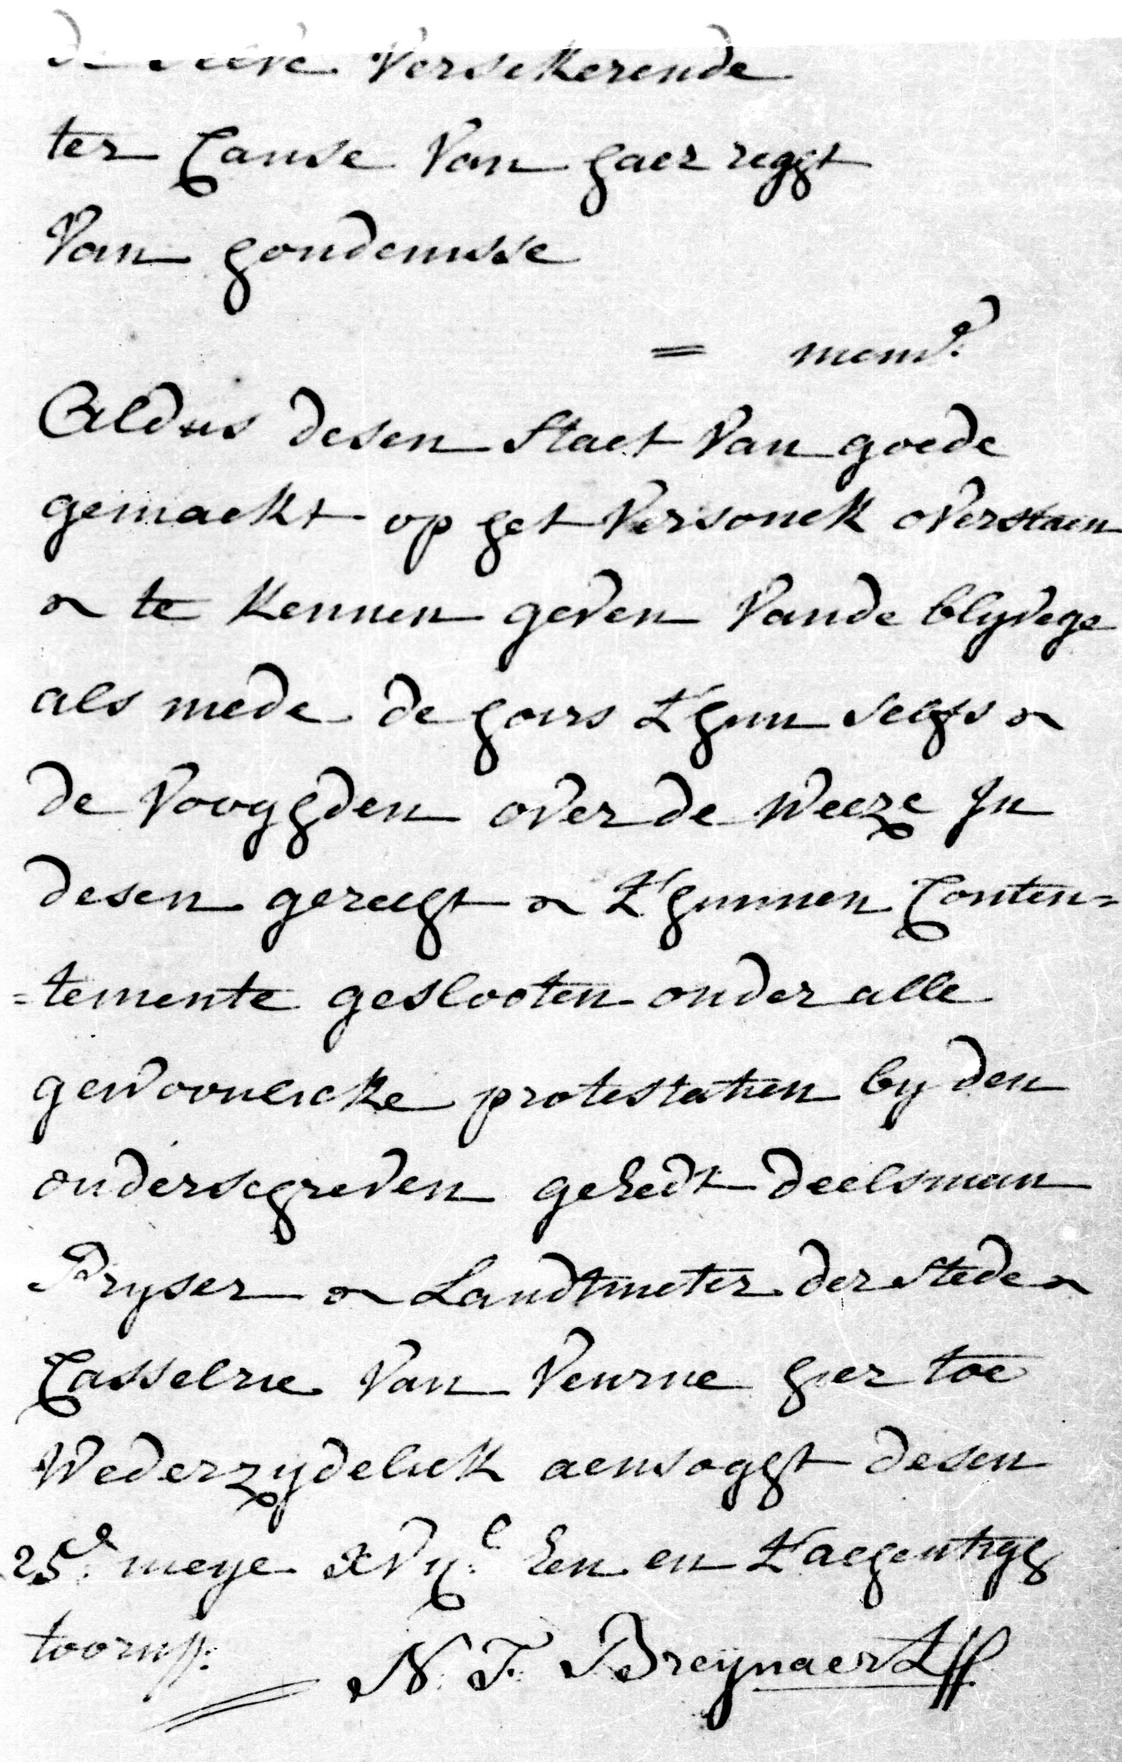 de selve Versekerende
ter Cause Van haer regt
Van houdenisse
= memo.e
Aldus desen staet Van goede
gemaekt op het Versouck overstaen
en te kennen geven Vande blyvege
als mede de hoirs t'hun selfs en
de Vooghden over de Weeze In
desen gereegt en t'hunnen Conten=
=temente geslooten onder alle
gewoonelicke protestatien by den
onderschreven geEedt deelsman
Pryser en Landtmeter der stede en
Casselrie Van Veurne hier toe
Wederzydelick aensoght desen
25.e meye XVij.C Een en t'aegentigh
toorn
N. F. Breijnaert